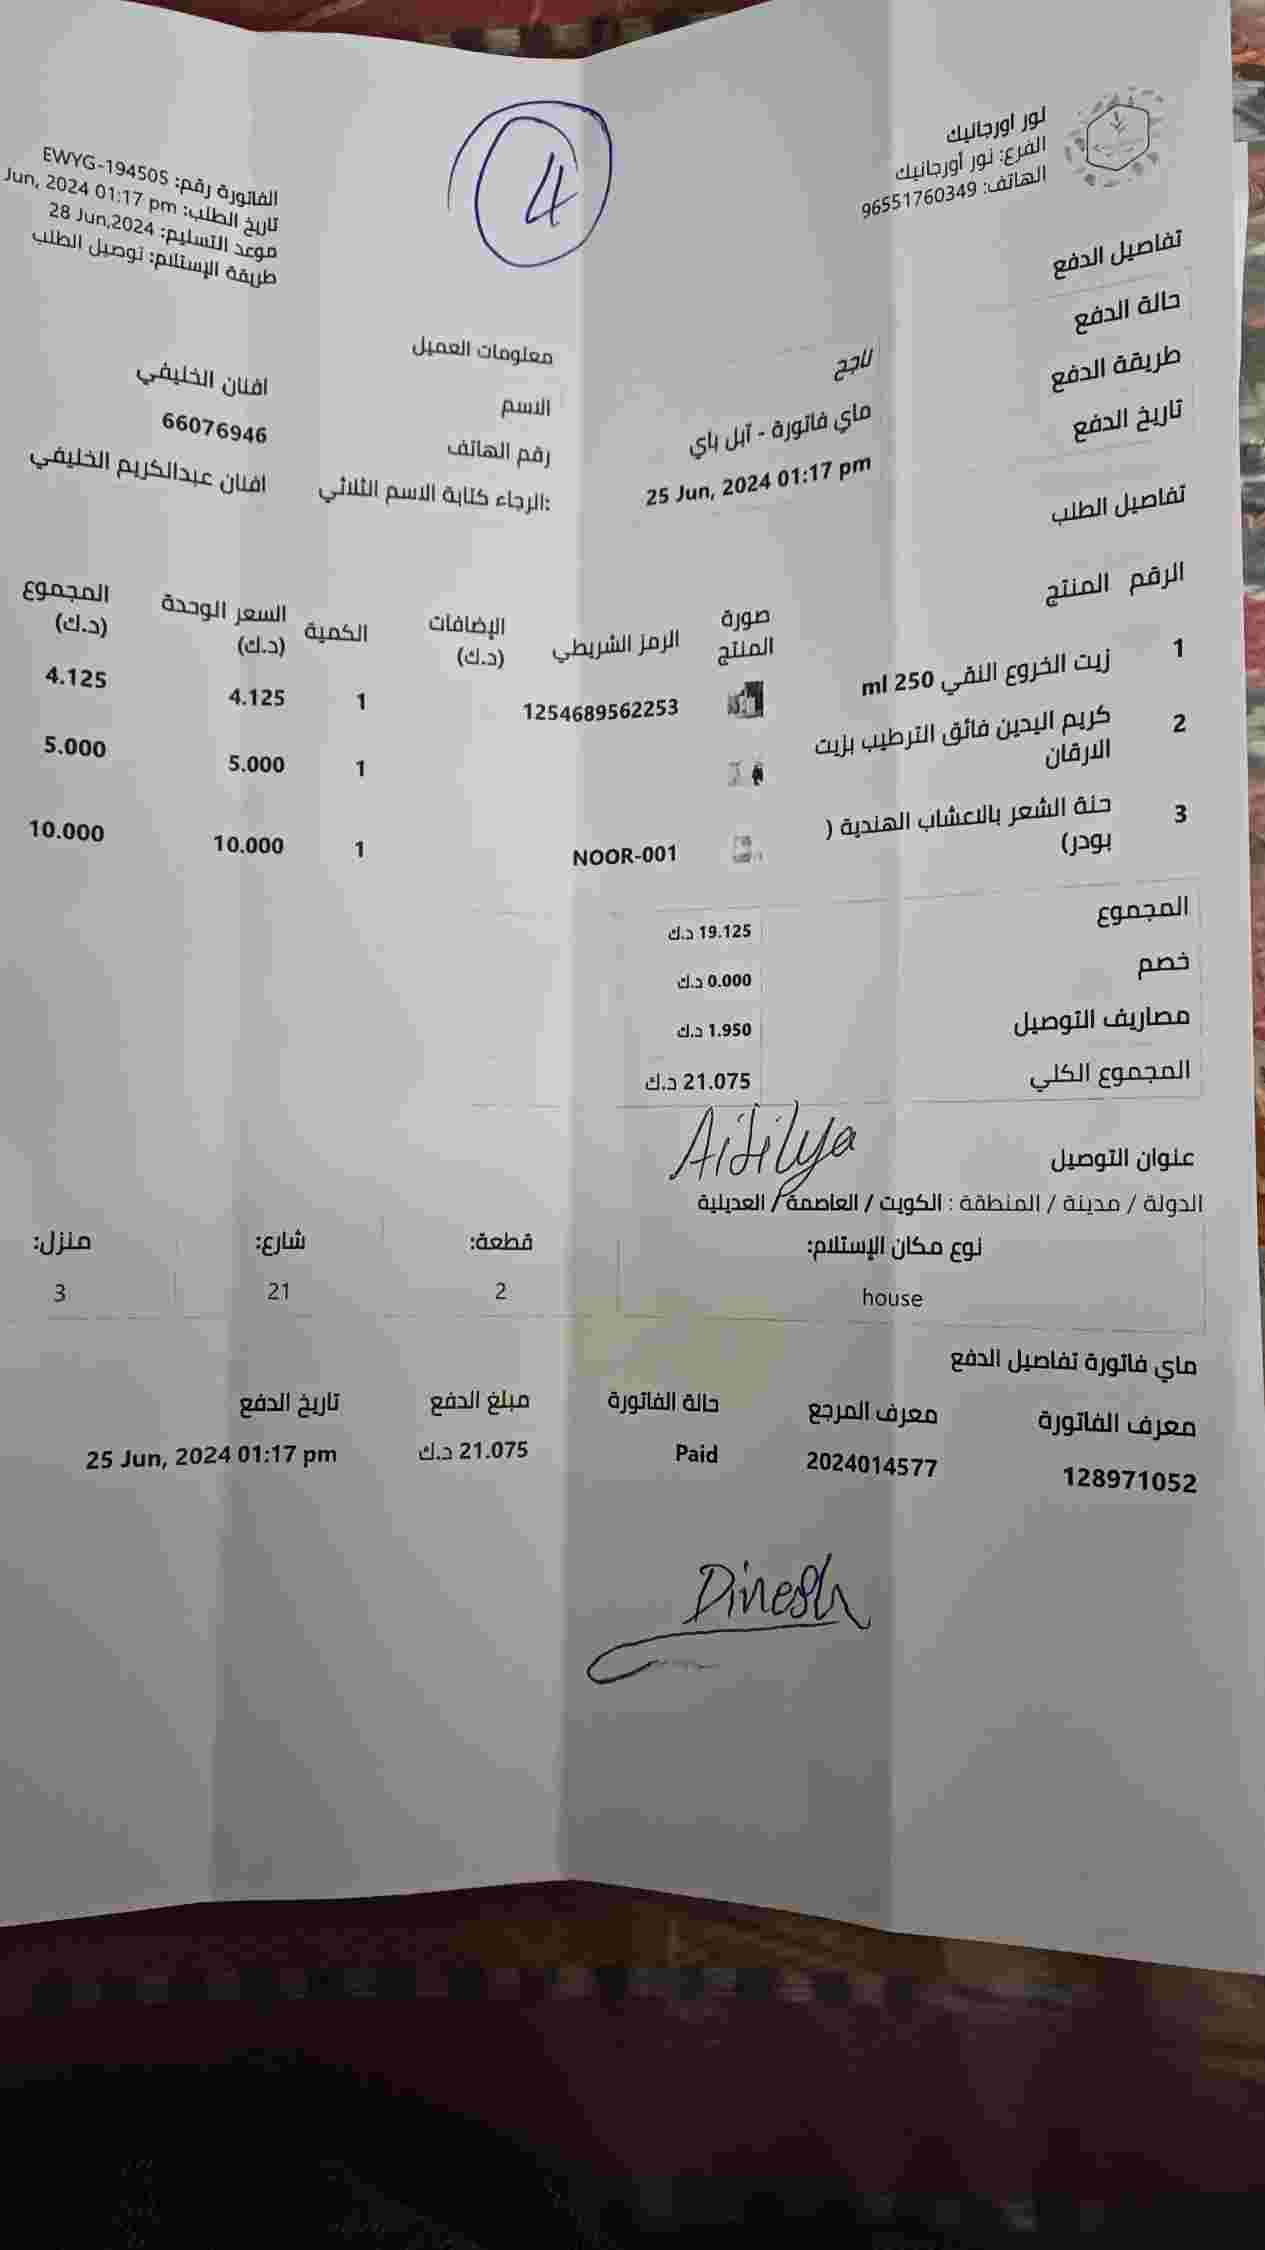 نور اورجانيك
الفرع: نور أورجانيك
الهاتف: 96551760349
4
الفاتورة رقم: EWYG-194505
تاريخ الطلب: Jun, 2024 01:17 pm
موعد التسليم: 28 Jun,2024
طريقة الإستلام: توصيل الطلب
تفاصيل الدفع
حالة الدفع ناجح
طريقة الدفع ماي فاتورة - آبل باي
تاريخ الدفع 25 Jun, 2024 01:17 pm
معلومات العميل
الاسم افنان الخليفي
رقم الهاتف 66076946
الرجاء كتابة الاسم الثلاثي: افنان عبدالكريم الخليفي
تفاصيل الطلب
الرقم المنتج صورة المنتج الرمز الشريطي الإضافات (د.ك) الكمية السعر الوحدة (د.ك) المجموع (د.ك)
1 زيت الخروع النقي 250 ml 1254689562253 1 4.125 4.125
2 كريم اليدين فائق الترطيب بزيت الارقان 1 5.000 5.000
3 حنة الشعر بالاعشاب الهندية ( بودر) NOOR-001 1 10.000 10.000
المجموع 19.125 د.ك
خصم 0.000 د.ك
مصاريف التوصيل 1.950 د.ك
المجموع الكلي 21.075 د.ك
عنوان التوصيل
الدولة / مدينة / المنطقة : الكويت / العاصمة / العديلية
نوع مكان الإستلام: قطعة: شارع: منزل:
house 2 21 3
ماي فاتورة تفاصيل الدفع
معرف الفاتورة معرف المرجع حالة الفاتورة مبلغ الدفع تاريخ الدفع
128971052 2024014577 Paid 21.075 د.ك 25 Jun, 2024 01:17 pm
Dinesh